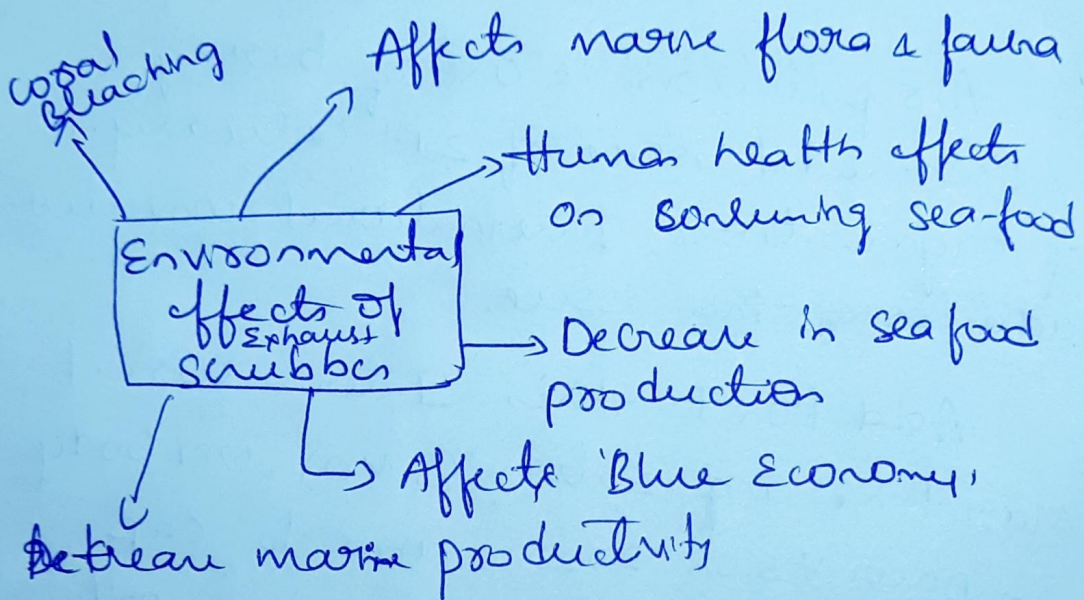 Coral
Bleaching
Affects marine flora & fauna
Human health effects
on consuming sea-food
Environmental
effects of
Exhaust
Scrubber
Decrease in sea food
production
Affects 'Blue Economy'
Decrease marine productivity